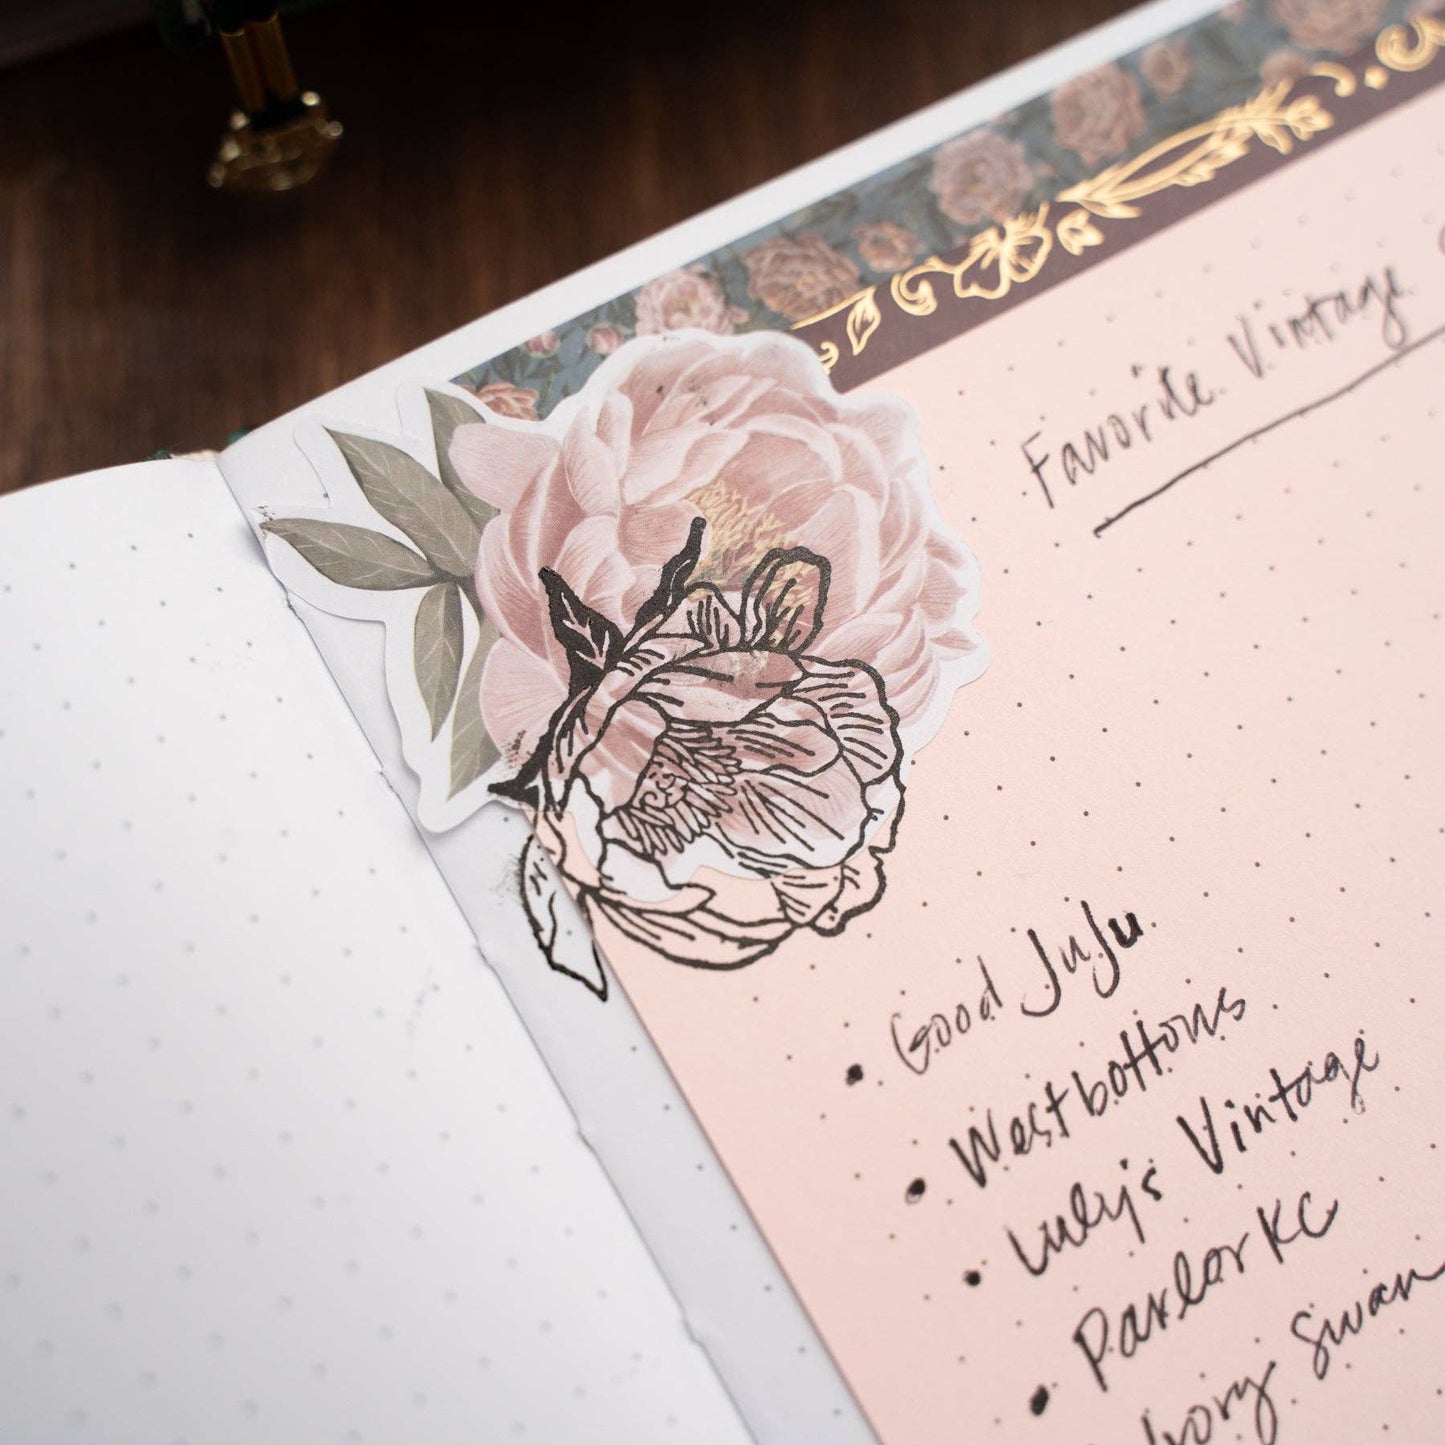 Favorite Vintage
• Good JuJu
• Westbottoms
• Luly's Vintage
• Parlor KC
Ivory Swan